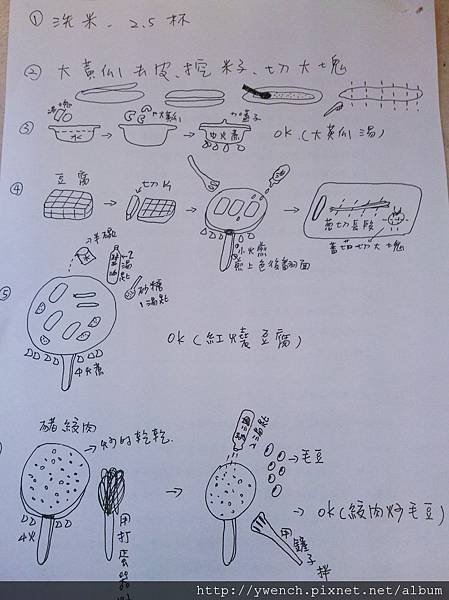 ① 洗米、2.5杯
② 大黃瓜去皮、挖籽子、切大塊
③ 湯塊
水
大黃瓜
加蓋子
中火煮
OK (大黃瓜湯)
④ 豆腐
切片
小火煎
煎上色後翻面
蔥切長段
蕃茄切大塊
⑤ 半碗
醬油
2湯匙
砂糖
1湯匙
中火煮
OK (紅燒豆腐)
豬絞肉
炒的乾乾
中火
用打蛋器
醬油
→毛豆
用鏟子拌
→ OK (絞肉炒毛豆)
http://ywench.pixnet.net/album